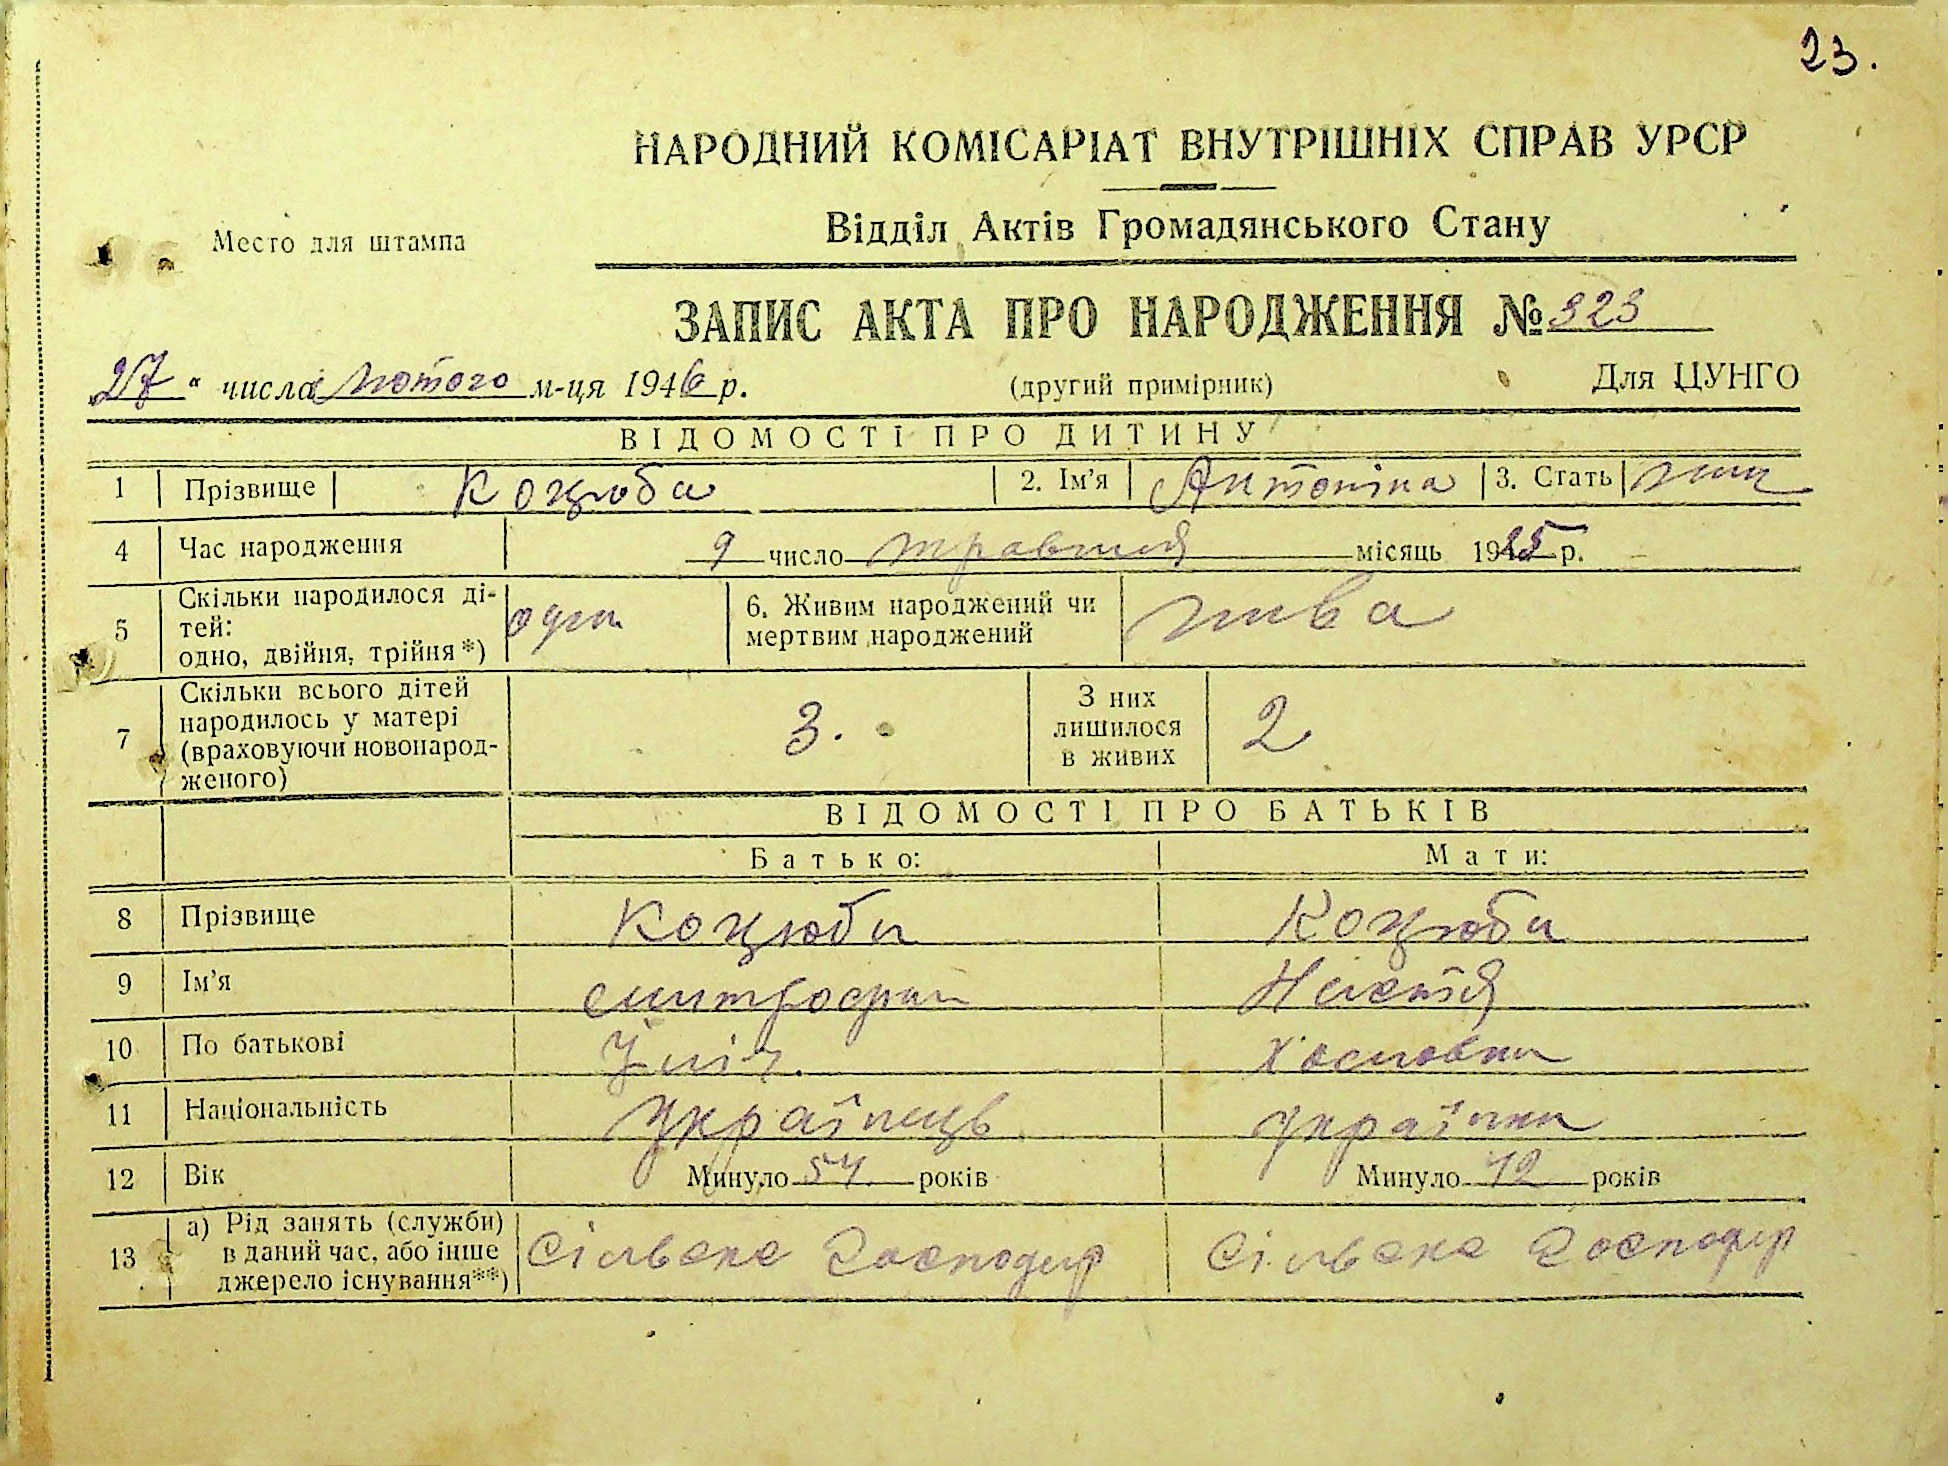 23.
НАРОДНИЙ КОМІСАРІАТ ВНУТРІШНІХ СПРАВ УРСР
Место для штампа
Відділ Актів Громадянського Стану
ЗАПИС АКТА ПРО НАРОДЖЕННЯ № 323
27 " числа лютого м-ця 1946 р. (другий примірник) Для ЦУНГО
ВІДОМОСТІ ПРО ДИТИНУ
1 Прізвище Коцюба 2. Ім'я Антоніна 3. Стать жін
4 Час народження 9 число травня місяць 1925 р.
5 Скільки народилося ді-
тей:
одно, двійня, трійня*) одна 6. Живим народжений чи
мертвим народжений жива
7 Скільки всього дітей
народилось у матері
(враховуючи новонарод-
женого) 3. З них
лишилося
в живих 2
ВІДОМОСТІ ПРО БАТЬКІВ
Батько: Мати:
8 Прізвище Коцюба Коцюба
9 Ім'я Митрофан Настя
10 По батькові
11 Національність Українець Українка
12 Вік Минуло 54 років Минуло 42 років
13 а) Рід занять (служби)
в даний час, або інше
джерело існування**) Сільське господар Сільське господар